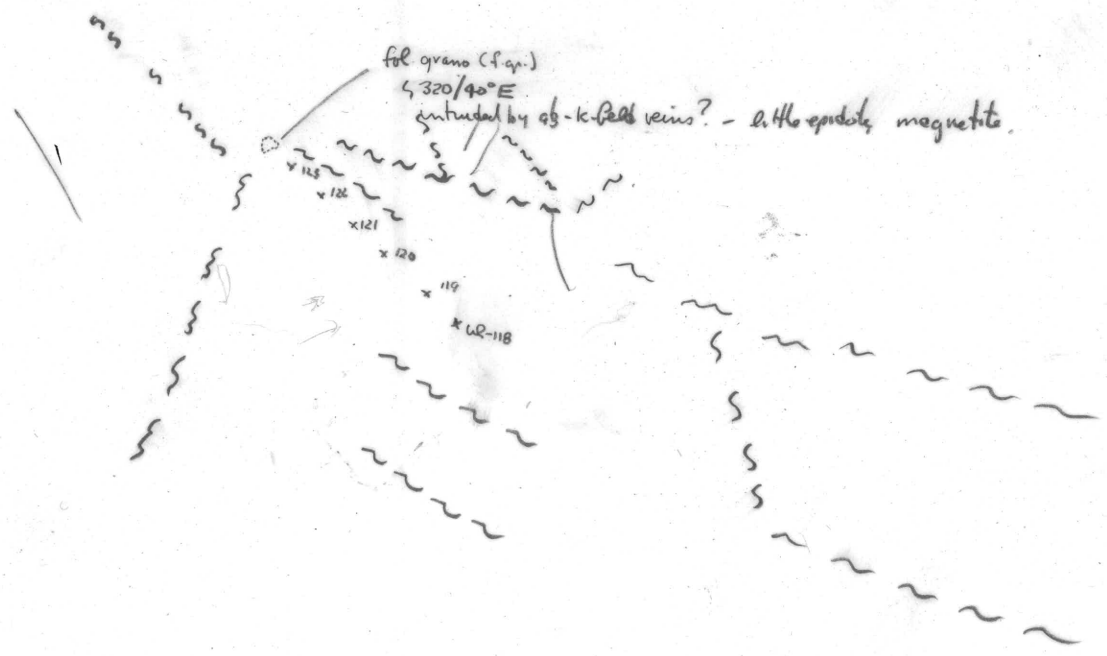 fol. grano (f.gr.)
320/40°E
intruded by qtz-K-feld veins? - little epidote, magnetite.
x 123
x 122
x 121
x 120
x 119
x WR-118